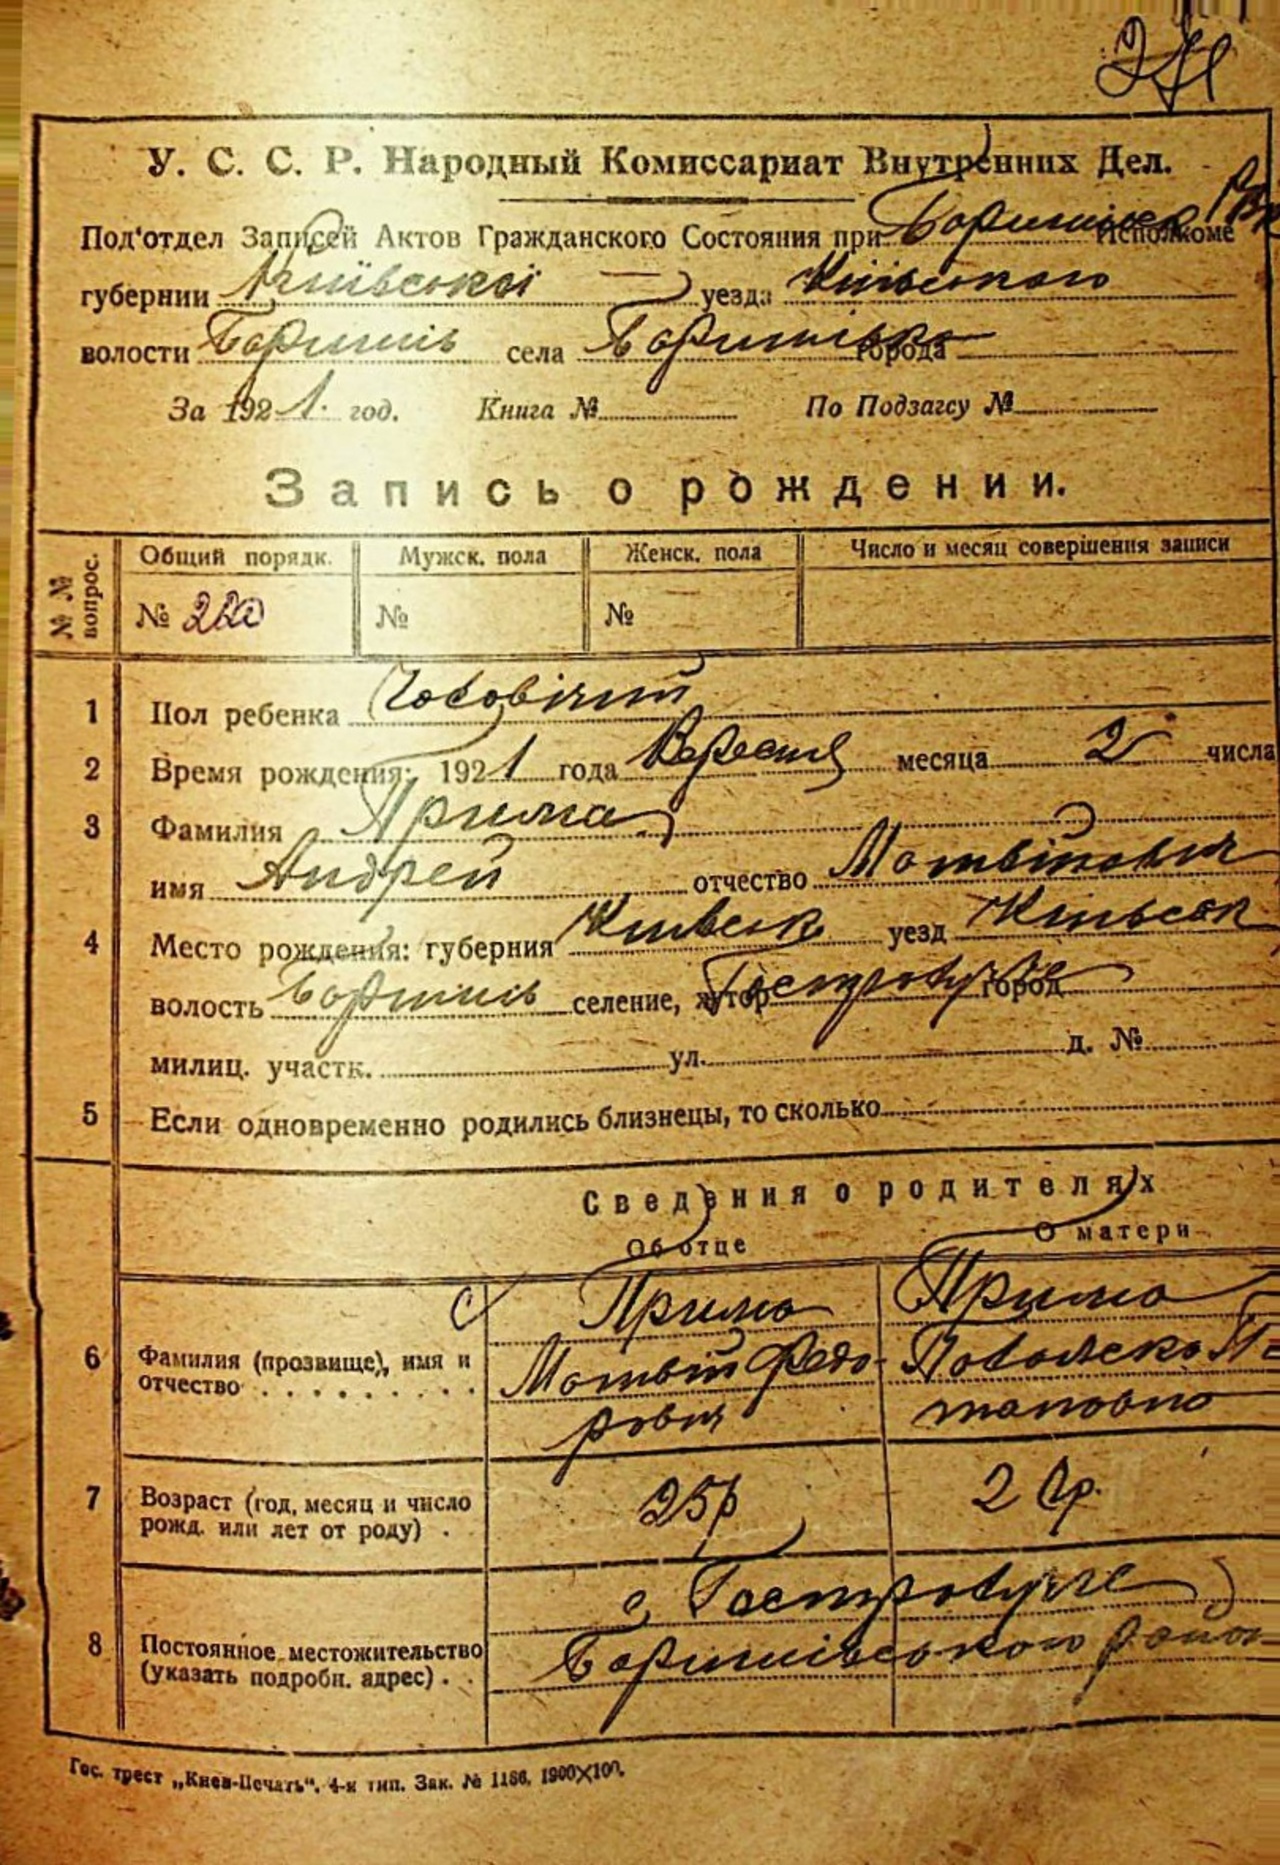 У. С. С. Р. Народный Комиссариат Внутренних Дел.
Под'отдел Записей Актов Гражданского Состояния при Исполкоме
губернии Київської уезда Київського
волости Бориспіль села города
За 1921. год. Книга № По Подзагсу №
Запись о рождении.
№ № вопрос. Общий порядк. Мужск. пола Женск. пола Число и месяц совершения записи
№ № №
1 Пол ребенка Чоловічий
2 Время рождения: 1921 года Вересня месяца 2 числа
3 Фамилия Прима
имя Андрей отчество Матвійович
4 Место рождения: губерния Київськ уезд Київськ
волость селение, хутор город
милиц. участк. ул. д. №
5 Если одновременно родились близнецы, то сколько
Сведения о родителях
Об отце О матери
Прима Прима
6 Фамилия (прозвище), имя и отчество Матвій Федо-
рович
7 Возраст (год, месяц и число рожд. или лет от роду) . 25р
с.
8 Постоянное местожительство (указать подробн. адрес) . .
Гос. трест „Киев-Печать“. 4-я тип. Зак. № 1186. 1900×100.